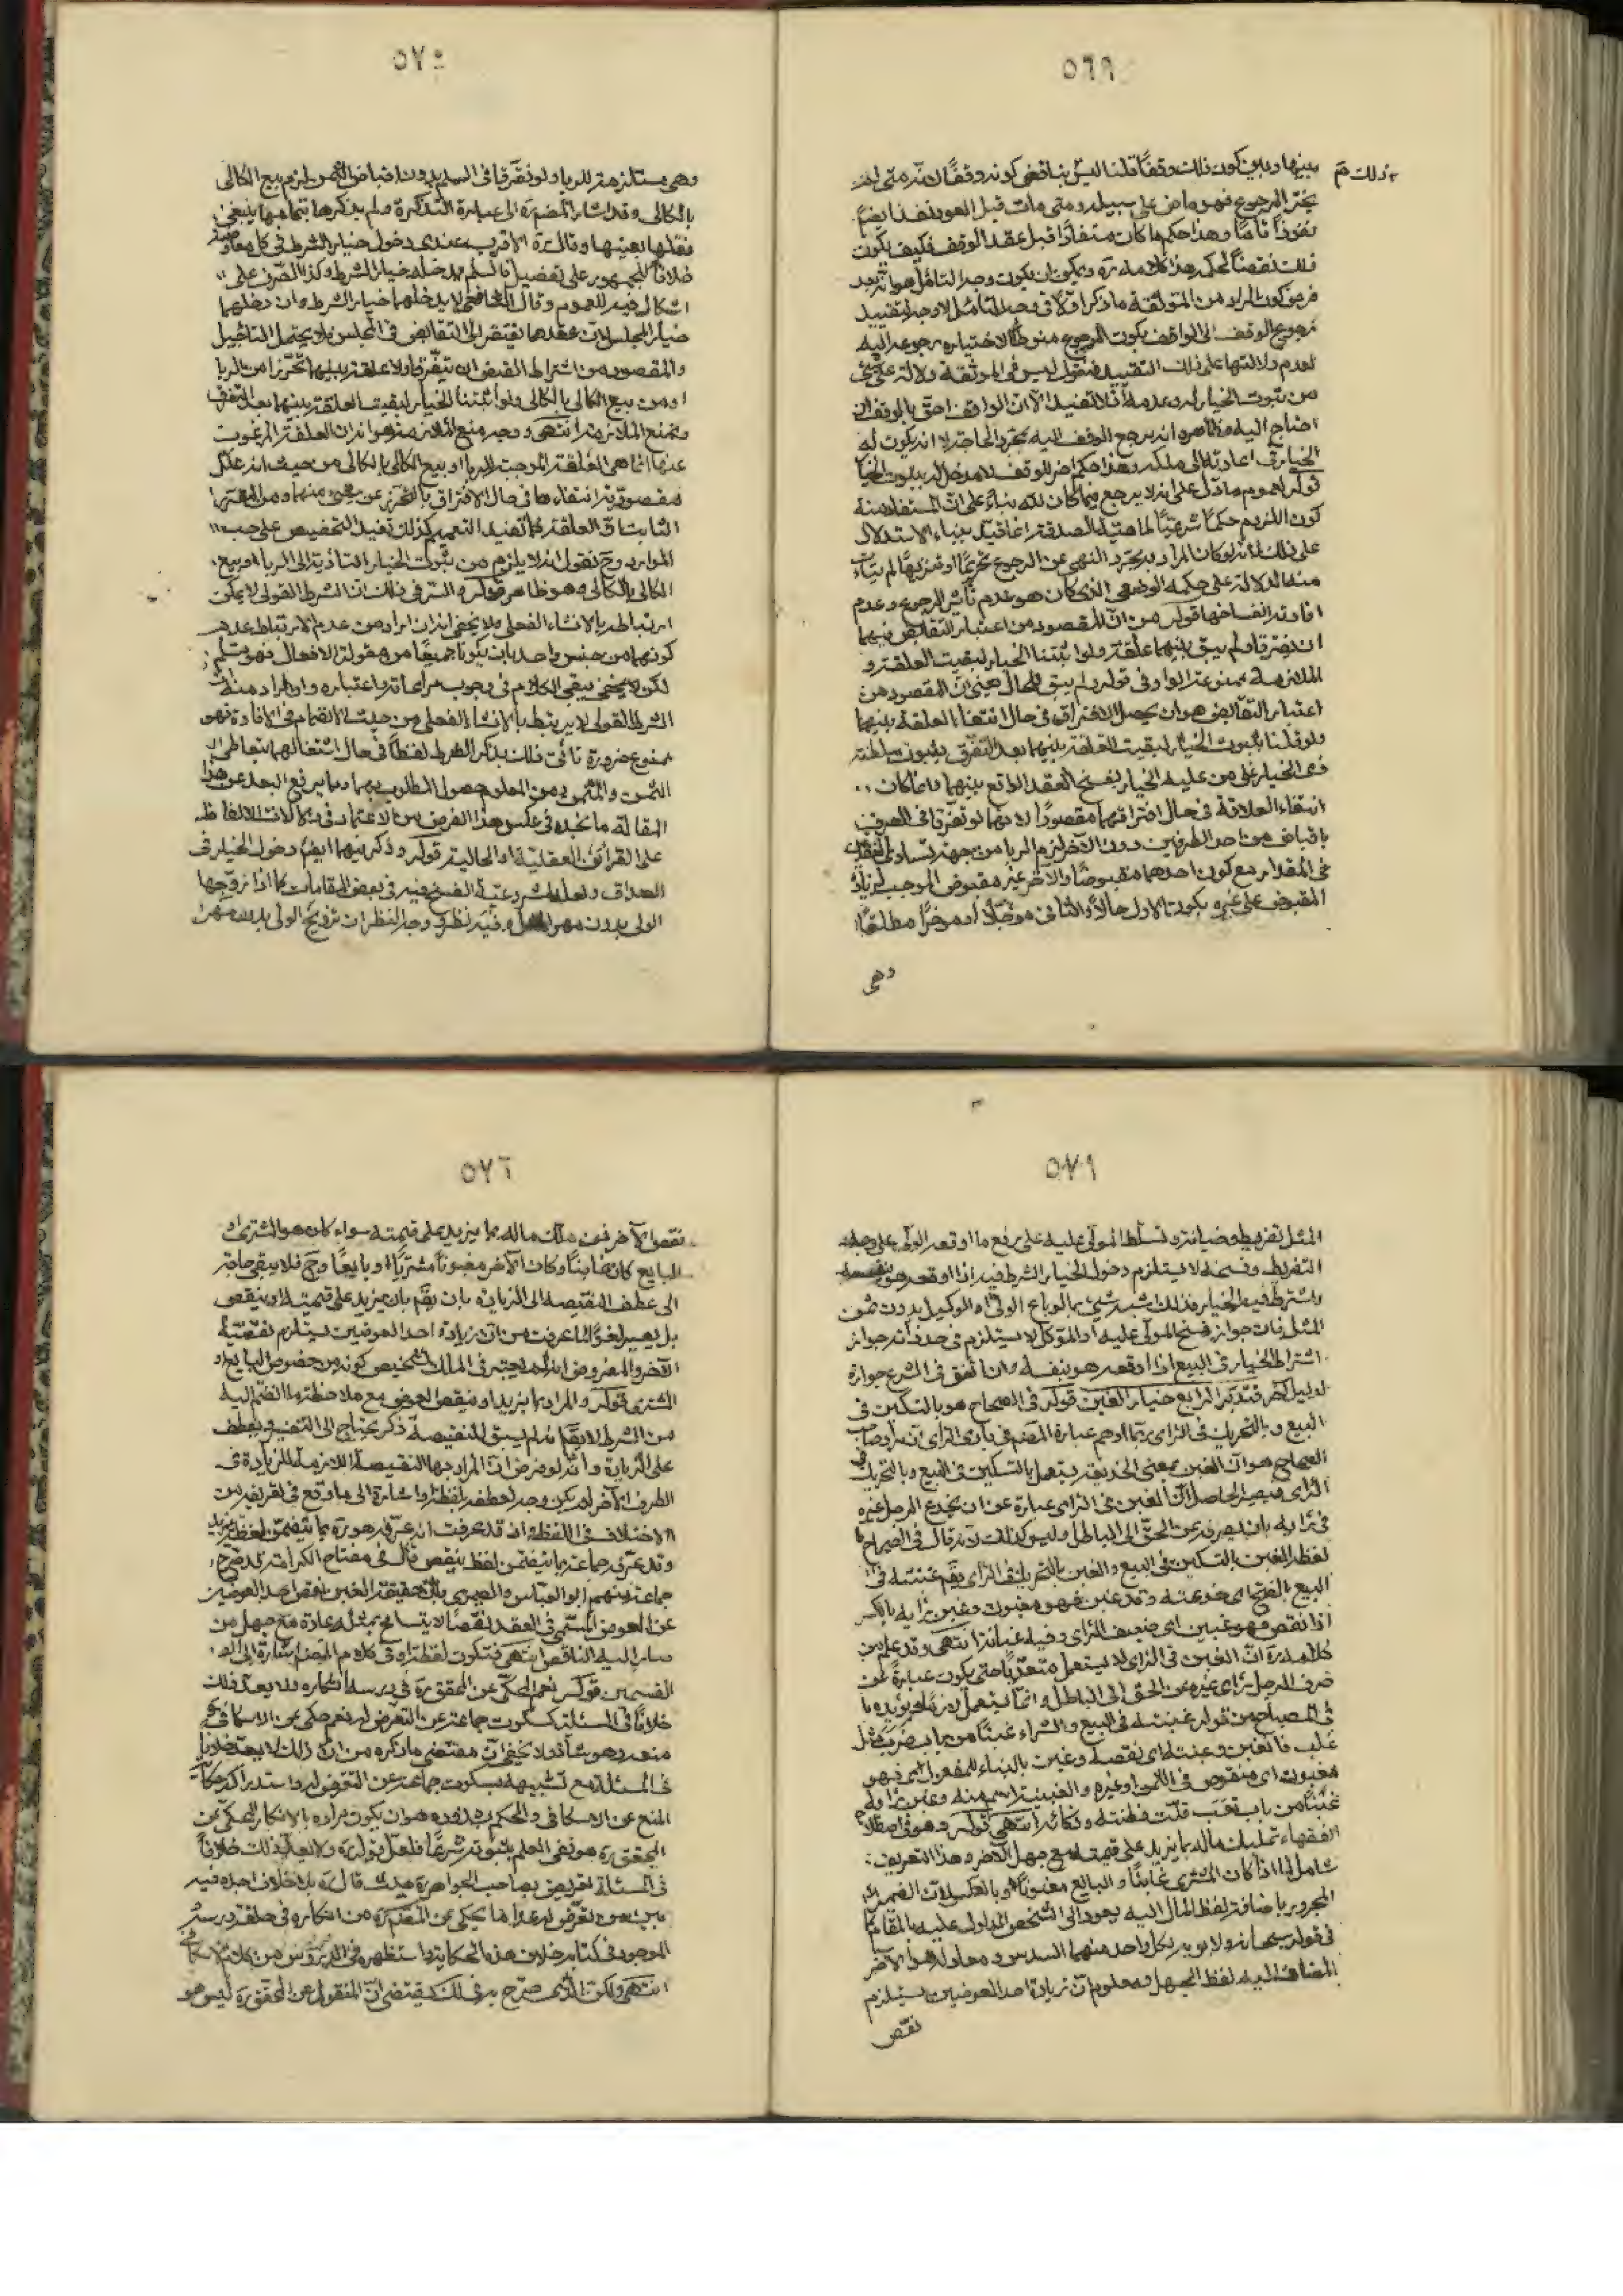 ٥٦٩
بينها وبين كون ذلك وقفاً قلنا ليس بناقض كونه وقفاً لانه متى لم
يختر الرجوع فهو ماض على سبيله ومتى مات قبل العود نفذ ايضاً
نفوذاً تامّاً وهذا حكم ما كان مستفاداً قبل عقد الوقف فكيف يكون
ذلك نقضاً لحكمه هذا كلامه ره ويمكن ان يكون وجه التأمل هو انه بعد
فرض كون المراد من الموثقة ما ذكر اوّلاً في وجه التأمل لا وجه لتقييد
رجوع الوقف الى الواقف بكون الرجوع منوطاً لاختياره رجوعه اليه
لعدم دلالتها على ذلك التقييد فنقول ليس في الموثقة دلالة على شئ
من ثبوت الخيار له وعدمه اذ لا تفيد الا ان الواقف احق بالوقف ان
احتاج اليه وظاهره انه يرجع الوقف اليه بمجرد الحاجة لا انه يكون له
الخيار في اعادته الى ملكه وهذا حكم اخر للوقف لا مدخل له بثبوت الخيار
قوله لعموم ما دل على انه لا يرجع فيما كان لله بناء على ان المستفاد منه
كون اللزوم حكماً شرعيّاً لماهية الصدقة انما قيد بهذا الاستدلال
على ذلك لانه لو كان المراد به مجرد النهي عن الرجوع تحريماً او تنزيهاً لم يتأت
منه الدلالة على حكمه الوضعي الذي كان هو عدم تأثير الرجوع وعدم
افادته انفساخها قوله من ان المقصود من اعتبار التقابض فيهما
ان يفترقا ولم يبق بينهما علقة ولو اثبتنا الخيار لبقيت العلقة و
الملازمة ممنوعة الواو في قوله ولم يبق للحال يعني ان المقصود من
اعتبار التقابض هو ان يحصل الافتراق في حال انتفاء العلقة بينهما
ولو قلنا بثبوت الخيار لبقيت العلقة بينهما بعد التفرق بثبوت سلطنة
ذي الخيار على من عليه الخيار بفسخ العقد الواقع بينهما وانما كان
انتفاء العلاقة في حال افتراقهما مقصوداً لانهما لو تفرقا في الصرف
باقباض من احد الطرفين دون الآخر لزم الربا من جهة تساوي النقدين
في المقدار مع كون احدهما مقبوضاً والاخر غير مقبوض الموجب لزيادة
المقبوض على غيره بكون الاول حالاً والثاني مؤجّلاً او مؤخراً مطلقاً
وهي
٥٧٠
وهي مستلزمة للربا ولو تفرقا في السلم بدون اقباض الثمن لزم بيع الكالي
بالكالي وقد اشار المصنف ره الى عبارة التذكرة ولم يذكرها بتمامها ينبغي
نقلها بعينها وقال ره الاقرب عندي دخول خيار الشرط في كل معاوضة
خلافاً للجمهور على تفصيل فالسلم يدخله خيار الشرط وكذا الصرف على
اشكال فيه للعموم وقال الشافعي لا يدخلهما خيار الشرط وان دخلهما
خيار المجلس لان عقدهما يفتقر الى التقابض في المجلس ولا يحتمل التأجيل
والمقصود من اشتراط القبض ان يتفرقا ولا علقة بينهما تحرّزاً من الربا
او من بيع الكالي بالكالي ولو اثبتنا الخيار لبقيت العلقة بينهما بعد التفرق
ونمنع الملازمة انتهى ووجه منع الملازمة هو ان العلقة المرغوب
عنها انما هي العلقة الموجبة للربا او بيع الكالي بالكالي من حيث انه علل
مقصودية انتفاءها في حال الافتراق بالتحرز عن شئ منهما ومن المقرر
ان العلة كما تفيد التعميم كذلك تفيد التخصيص على حسب
الموارد وح نقول انه لا يلزم من ثبوت الخيار التأدية الى الربا او بيع
الكالي بالكالي وهو ظاهر قوله والسر في ذلك ان الشرط القولي لا يمكن
ارتباطه بالانشاء الفعلي ولا يخفى انه ان اراد من عدم الارتباط عدم
كونهما من جنس واحد بان يكونا جميعاً من مقولة الافعال فهو مسلم
لكن لا يخفى بقي الكلام في وجوب مراعاته واعتباره وان اراد منه ان
الشرط القولي لا يرتبط بالانشاء الفعلي من حيث الانضمام في الافادة فهو
ممنوع ضرورة تأتي ذلك بذكر الشرط لفظاً في حال اشتغالهما بتعاطي
الثمن والمثمن ومن المعلوم حصول المطلوب بهما ومما يرفع البعد عن هذا
المقالة ما نجده في عكس هذا الفرض من الاعتماد في دلالات الالفاظ
على القرائن العقلية او الحالية قوله وذكر فيهما ايضاً دخول الخيار في
الصداق ولعله لمشروعية الفسخ فيه في بعض المقامات كما اذا زوجها
الولي بدون مهر المثل وفيه نظر وجه النظر ان تزويج الولي بدون مهر
٥٧١
المثل تفريط وخيانة وتسلّط المولّى عليه على رفع ما اوقعه الولي على وجه
التفريط وفسخه لا يستلزم دخول الخيار الشرط فيه اذا اوقعه هو بنفسه
واشترط فيه الخيار فذلك اشبه شئ بما لو باع الولي او الوكيل بدون ثمن
المثل فان جواز فسخ المولى عليه او الموكل لا يستلزم في حد ذاته جواز
اشتراط الخيار في البيع اذا اوقعه هو بنفسه وان اتفق في الشرع جوازه
لدليل اخر فتدبّر الرابع خيار الغبن قوله في الصحاح هو بالتسكين في
البيع وبالتحريك في الرأي ربما اوهم عبارة المصنف في بادي الرأي ان مراد صاحب
الصحاح هو ان الغبن بمعنى الخديعة يستعمل بالتسكين في البيع وبالتحريك في
الرأي فيصير الحاصل ان الغبن في الرأي عبارة عن ان يخدع الرجل غيره
في رأيه بان يصرفه عن الحق الى الباطل وليس كذلك لانه قال في الصحاح
لفظ الغبن بالتسكين في البيع والغبن بالتحريك في الرأي يقم غبنته في
البيع بالفتح اي خدعته وقد غبن فهو مغبون وغبن رأيه بالكسر
اذا نقص فهو غبين اي ضعيف الرأي وفيه غبانة انتهى وقد علم من
كلامه ره ان الغبن في الرأي لا يستعمل متعدّياً حتى يكون عبارة عن
صرف الرجل رأي غيره عن الحق الى الباطل وانما يستعمل لازماً ويؤيده ما
في المصباح من قوله غبنه في البيع والشراء غبناً من باب ضرب مثل
غلب فانغبن وغبنه اي نقصه وغبن بالبناء للمفعول فهو
مغبون اي منقوص في الثمن او غيره والغبينة اسم منه وغبن رأيه
غبناً من باب تعب قلّت فطنته وذكاؤه انتهى قوله وهو في اصطلاح
الفقهاء تمليك ماله بما يزيد على قيمته مع جهل الآخر وهذا التعريف
شامل لما اذا كان المشتري غابناً والبايع مغبوناً وبالعكس لان الضمير
المجرور باضافة لفظ المال اليه يعود الى الشخص المدلول عليه بالمقام كما
في قوله سبحانه ولابويه لكل واحد منهما السدس ومعلوم ان الآخر
المضاف اليه لفظ الجهل ومعلوم ان زيادة احد العوضين يستلزم
نقص
٥٧٢
نقص الآخر فمن ملك ماله بما يزيد على قيمته سواء كان هو المشتري او
البايع كان غابناً وكان الآخر مغبوناً مشترياً او بايعاً وح فلا يبقى حاجة
الى عطف النقيصة الى الزيادة بان يقم بان يزيد على قيمته او ينقص
بل يصير لغواً لما عرفت من ان زيادة احد العوضين يستلزم نقيصة
الآخر والمفروض انه لم يعتبر في المملك الشخص كونه من خصوص البايع او
المشتري قوله والمراد بما يزيد او ينقص العوض مع ملاحظة ما انضم اليه
من الشرط لا يقم انه لم يسبق للنقيصة ذكر يحتاج الى التفسير ويعطف
على الزيادة وانه لو فرض ان المراد بها النقيصة اللازمة للزيادة في
الطرف الآخر لم يكن وجه لعطف لفظة او اشارة الى ما وقع في تعريفه من
الاختلاف في اللفظ وانه قد عرفت انه عرّفه هو ره بما يتضمن لفظ يزيد
وقد عرّفه جماعة بما يتضمن لفظ ينقص قال في مفتاح الكرامة قد صرح
جماعة منهم ابو العباس والصيمري بان حقيقة الغبن نقص احد العوضين
عن العوض المسمّى في العقد نقصاً لا يتسامح بمثله عادة مع جهل من
صار اليه الناقص انتهى فتكون لفظة او في كلام المصنف اشارة الى
القسمين قوله نعم المحكي عن المحقق ره في درسه انكاره ولا يعد ذلك
خلافاً في المسئلة كسكوت جماعة عن التعرض له نعم حكي عن الاسكافي
منعه وهو شاذ ولا يخفى ان مقتضى ما ذكره من ان ذلك لا يعد خلافاً
في المسئلة مع تشبيهه بسكوت جماعة عن التعرض له واستدراك حكاية
المنع عن الاسكافي والحكم بشذوذه هو ان يكون مراده بالانكار المحكي عن
المحقق ره هو نفي العلم بثبوته شرعاً فلعل قوله ره ولا يعد ذلك خلافاً
في المسئلة تعريض بصاحب الجواهر ره حيث قال ره بلا خلاف اجده فيه
بين من تعرّض له عدا ما يحكى عن المصنف ره من انكاره في حلقة درسه
الموجود في كتابه خلاف هذه الحكاية واستظهره في الدروس من كلام الاسكافي
انتهى ولكن الذي صرح به في ذلك يقتضي ان المنقول عن المحقق ره ليس هو